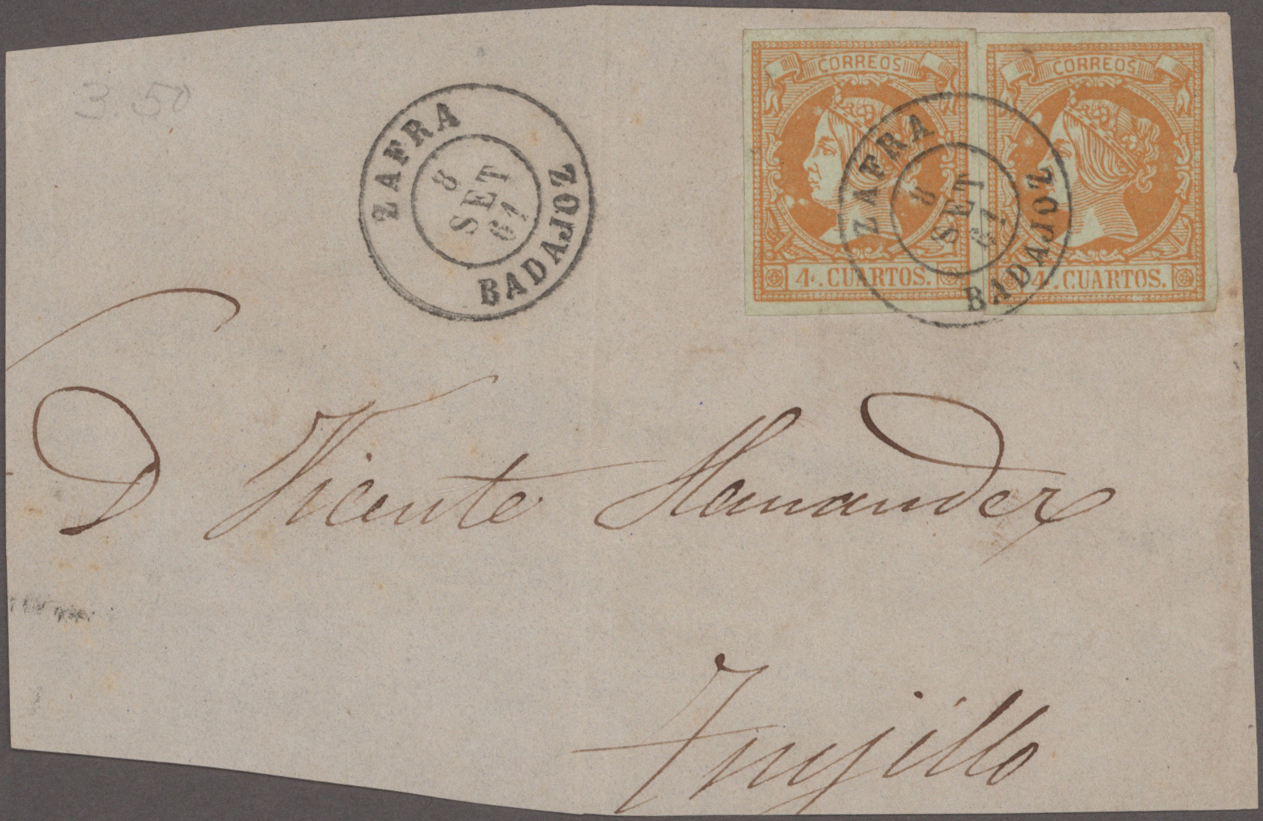 3.50
ZAFRA
8
SET
61
BADAJOZ
CORREOS
4. CUARTOS.
CORREOS
4. CUARTOS.
ZAFRA
8
SET
61
BADAJOZ
D Vicente Hernandez
Trujillo